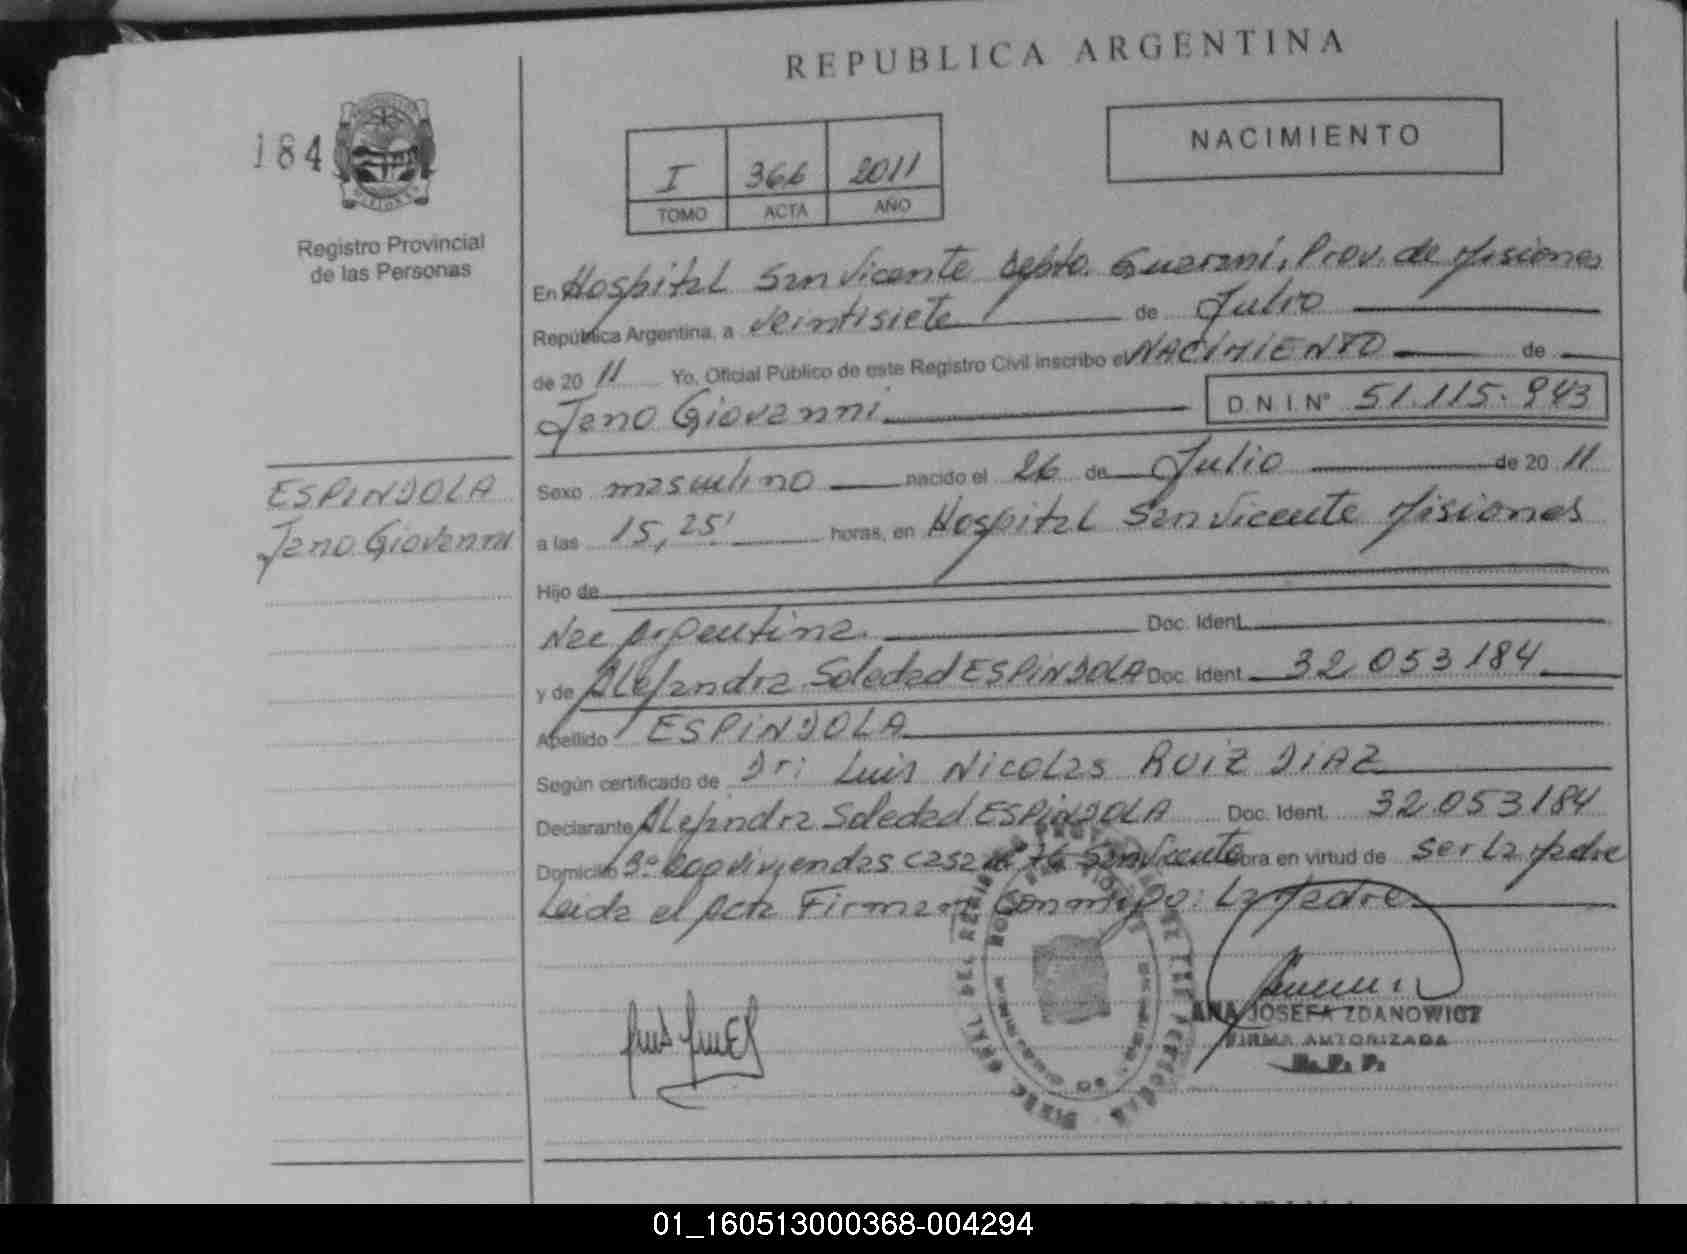 REPUBLICA ARGENTINA
184
NACIMIENTO
I 366 2011
TOMO ACTA AÑO
Registro Provincial
de las Personas
En Hospital San Vicente Depto. Guaraní, Prov. de Misiones
República Argentina, a veintisiete de Julio
de 2011 Yo, Oficial Público de este Registro Civil inscribo el NACIMIENTO de
Jano Giovanni D.N.I. Nº 51.115.943
ESPINDOLA
Jano Giovanni
Sexo masculino nacido el 26 de Julio de 2011
a las 15,25' horas, en Hospital San Vicente Misiones
Hijo de
Nac Argentina. Doc. Ident.
y de Alejandra Soledad ESPINDOLA Doc. Ident. 32.053184
Apellido ESPINDOLA
Según certificado de Dr: Luis Nicolas RUIZ DIAZ
Declarante Alejandra Soledad ESPINDOLA Doc. Ident. 32.053184
Domicilio viviendas casa San Vicente obra en virtud de ser La Madre
Leida el Acta Firman Conmigo: La Madre
ANA JOSEFA ZDANOWICZ
FIRMA AUTORIZADA
R. P. P.
01_160513000368-004294